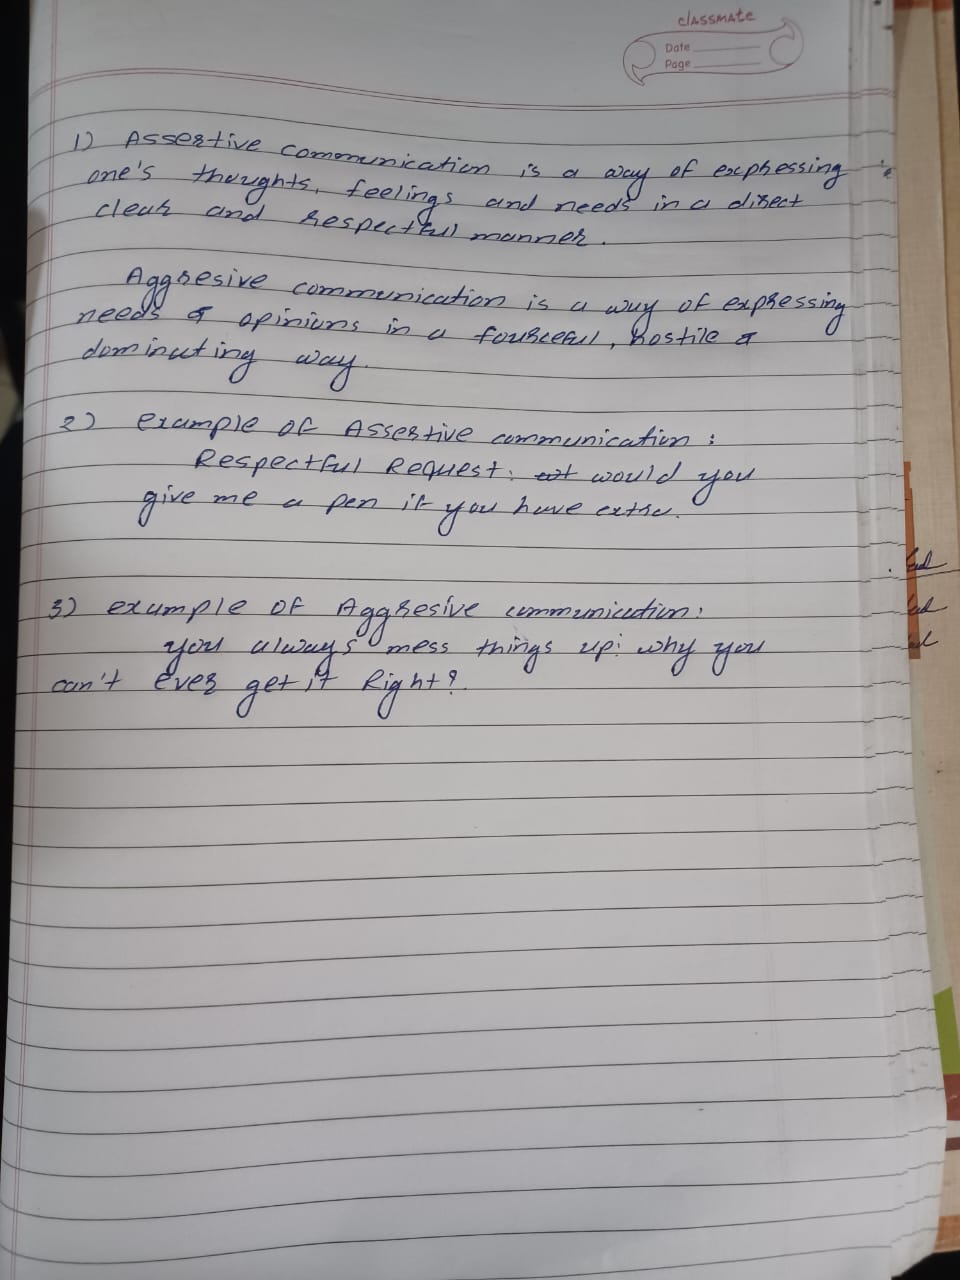 classmate
Date
Page
1) Assertive communication is a way of expressing
one's thoughts, feelings and needs in a direct
clear and respectful manner.
Aggresive communication is a way of expressing
needs & opinions in a fourceful, hostile &
dominating way.
2) example of Assertive communication :
Respectful Request: would you
give me a pen if you have extra.
3) example of Aggresive communication:
you always mess things up: why you
can't ever get it Right?